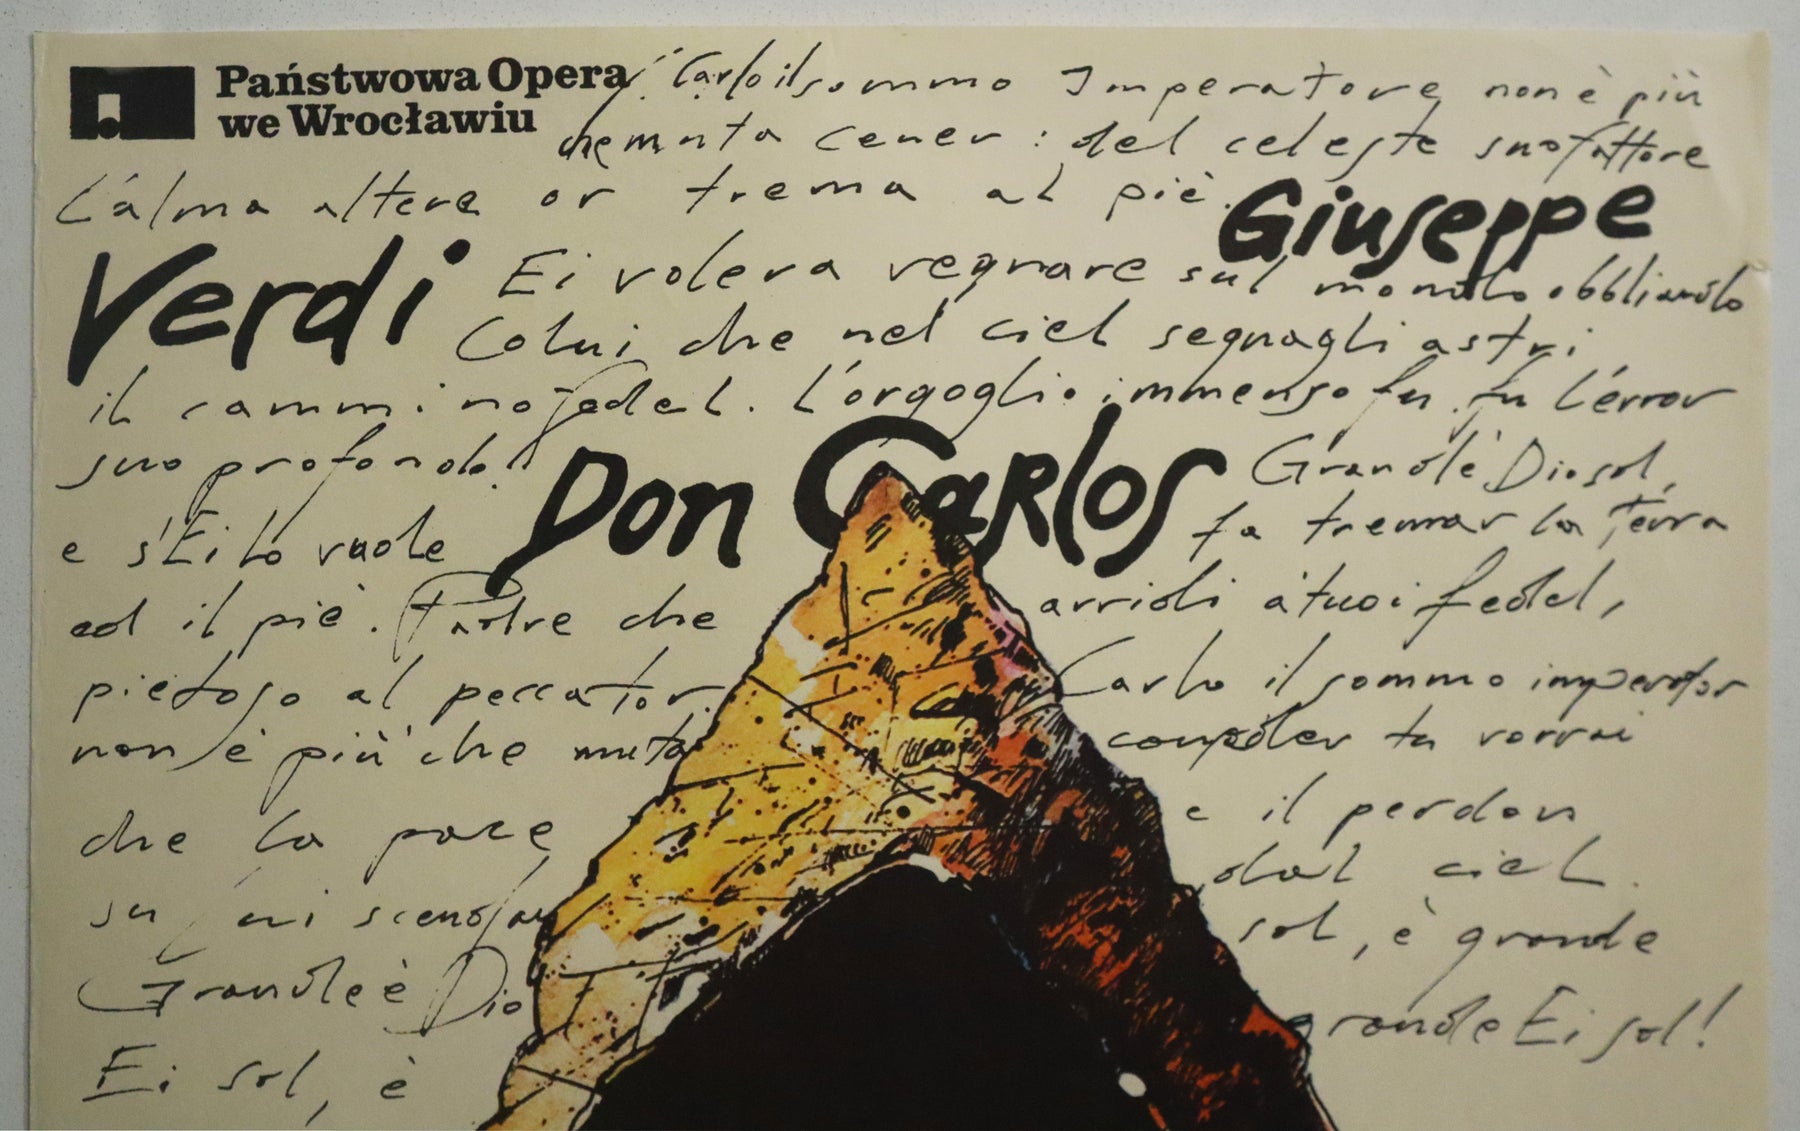 Państwowa Opera
we Wrocławiu
Carlo il sommo Imperatore non è più
che muta cener : del celeste suo fattore
L'alma altera or trema al piè.
Giuseppe
Verdi
Ei voleva regnare sul mondo obbliando
Colui che nel ciel segnagli astri
il cammino fedel. L'orgoglio immenso fu, fu l'error
suo profondo!
Don Carlos
Grand'è Dio sol,
e s'Ei lo vuole fa tremar la terra
ed il piè. Padre che arridi a' tuoi fedel,
pietoso al peccator. Carlo il sommo imperator
non è più che muta conceder tu vorrai
che la pace e il perdon
su lui scendan dal ciel.
Grande è Dio sol, è grande
Ei sol, è grande Ei sol!